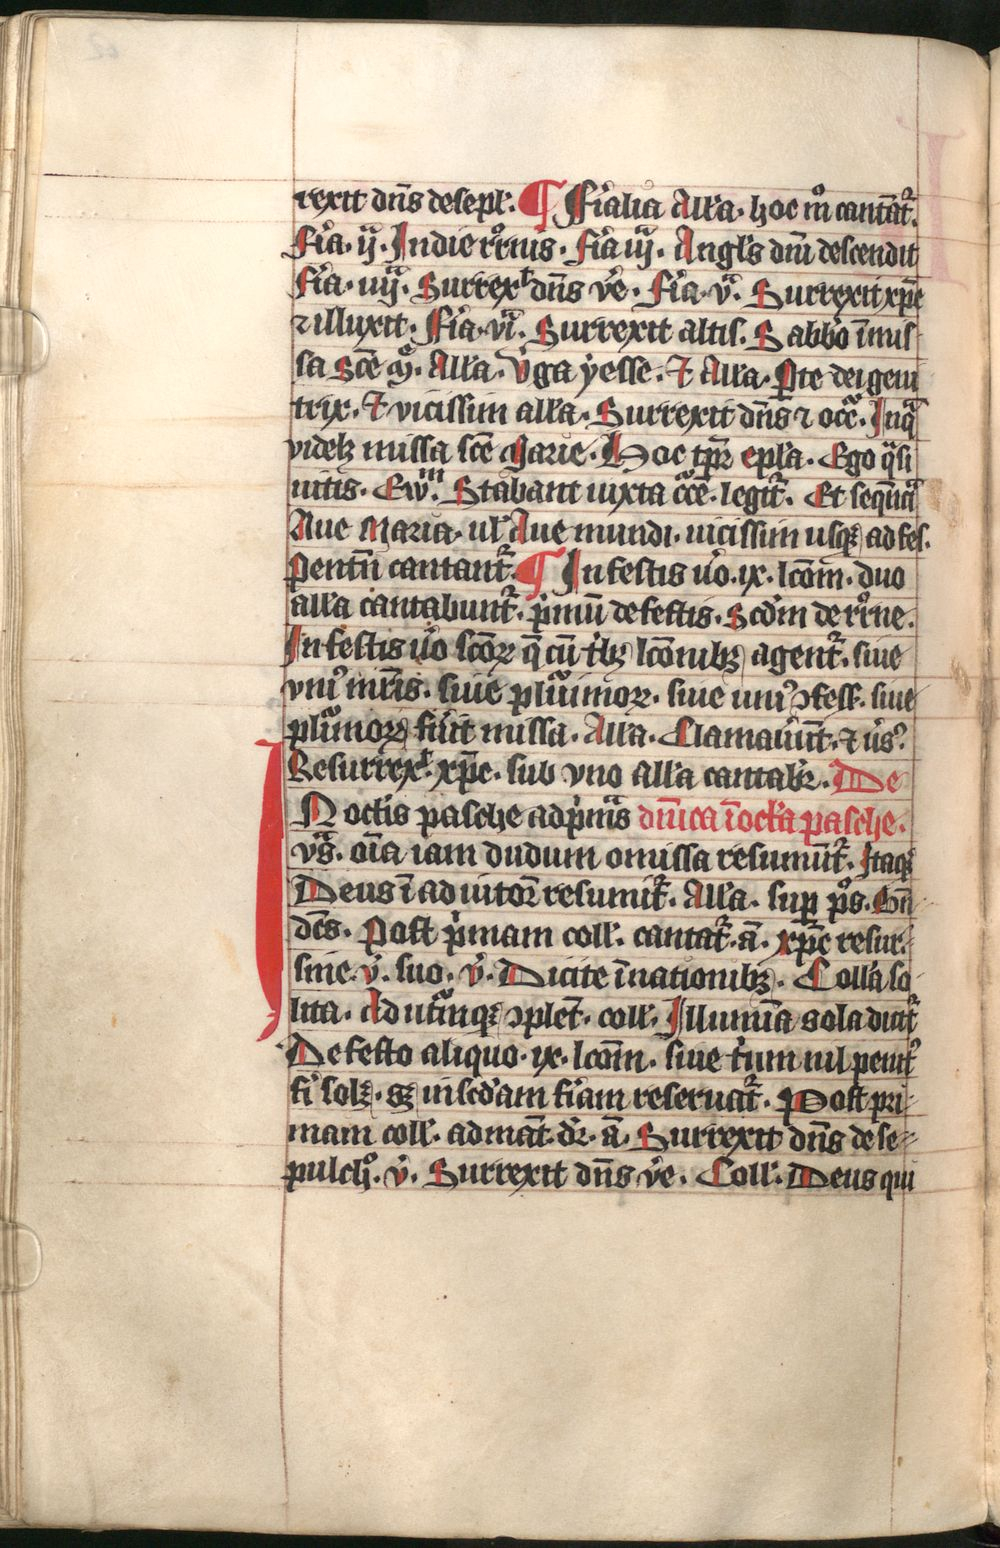 rexit dn̄s de sepl̄. ¶ Fiãlia All̓a. hoc mͦ cantāt᷑.
Fi̓a. ij. In die r̓r̓nis. Fi̓a iij. Angl̓s dn̄i descendit
Fi̓a. iiij. Surrex̓t dn̄s ve̓. Fi̓a. vͣ. Surrexit xp̄c
⁊ illuxit. Fi̓a. vi̓. Surrexit altis. Sabbo̓ ī mis-
sa Sc̄e M̓. All̓a. V̓ga yesse. Et All̓a. Pͥte dei geni
trix. Et vicissim all̓a. Surrexit dn̄s ⁊ occͣ. In qͣ
videlꝫ missa sc̄e Marie. Hoc tp̄r ep̄la. Ego qͣsi
uitis. Ew̄m. Stabant iuxta cͣcē. legit᷑. Et seqn̄tiͣ
Aue Maria. ul̓ Aue mundi. uicissim usqꝫ ad fes.
Pentn̄ cantant᷑. ¶ In festis uͦo. ix. lc̄om̄. duo
all̓a cantabunt᷑. p̓mū de festis. Scd̓m de r̓r̓ne.
In festis uͦo sc̄oꝝ q̄ cū tͥbꝫ lc̄onibꝫ agent᷑. siue
vniꝰ mr̄is. siue pluͥimoꝝ. siue uniꝰ ꝯfess. siue
pluͥmoꝝ fuͥit missa. All̓a. Clamauͥūt. ⁊ u̓sꝰ.
Resurrex̓t xp̄c. sub vno all̓a cantabit᷑. De
Noctis pasche ad pͥmas dn̄ica ī oct̓a pasche.
vs̓. oīa iam dudum omissa resumūt᷑. Itaqꝫ
Deus ī adiutor̄ resumit᷑. All̓a. suꝑ pͦs. Bn̄
dc̄s. Post pͥmam coll̓. cantat᷑. a̅. xp̄c resur-
siue. v̓. suo. v̓. Dicite ī nationibꝫ. Coll̓a so
lita. Ad utͣmqꝫ ꝯplet̄. coll̓. Illumīa sola dicit᷑
De festo aliquo. ix. lc̄om̄. siue tͥum nil penit᷑
fi̓ solꝫ. sꝫ in scd̓am fi̓am reseruat᷑. Post pri-
mam coll̓. ad mat̄. dr̄. a̅. Surrexit dn̄s de se-
pulchͦ. v̓. Surrexit dn̄s ve̓. Coll̓. Deus qui